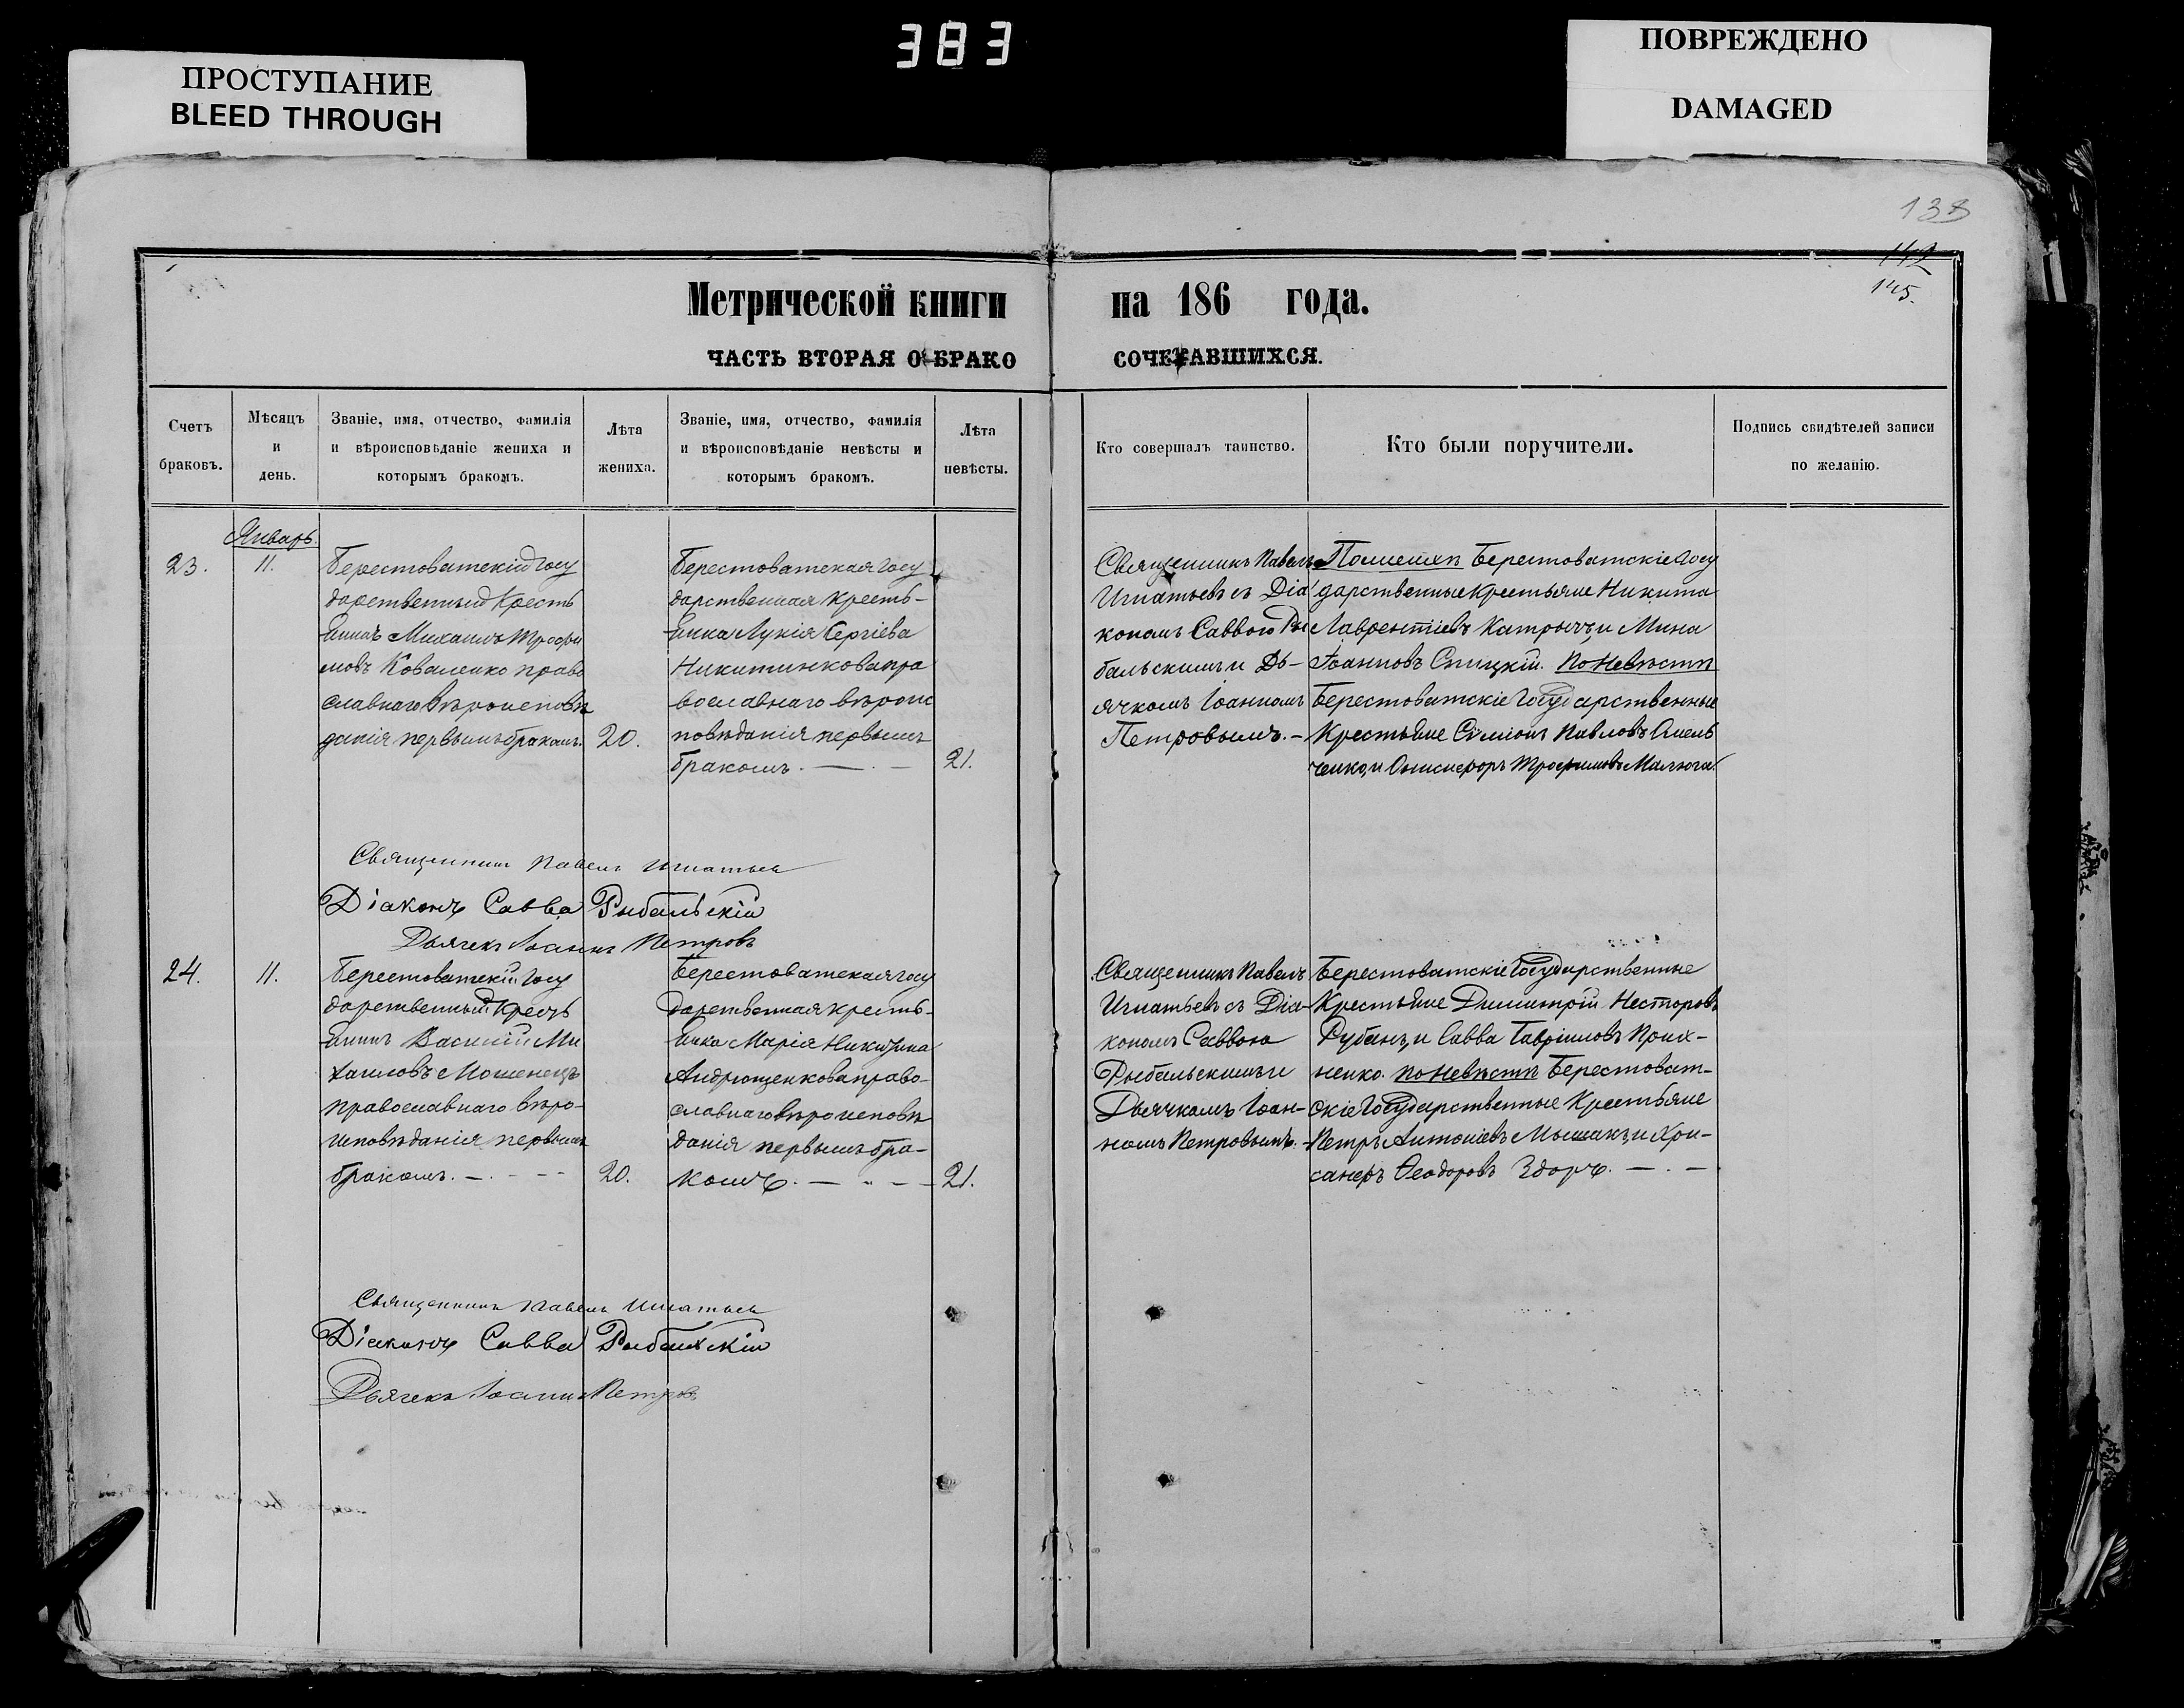 383
ПРОСТУПАНИЕ
BLEED THROUGH
ПОВРЕЖДЕНО
DAMAGED
138
142
145.
Метрической книги на 186 года.
ЧАСТЬ ВТОРАЯ О БРАКОСОЧЕТАВШИХСЯ.
Счетъ браковъ.
Мѣсяцъ и день.
Званіе, имя, отчество, фамилія
и вѣроисповѣданіе жениха и
которымъ бракомъ.
Лѣта жениха.
Званіе, имя, отчество, фамилія
и вѣроисповѣданіе невѣсты и
которымъ бракомъ.
Лѣта невѣсты.
Кто совершалъ таинство.
Кто были поручители.
Подпись свидѣтелей записи
по желанію.
Январь.
23.
11.
Берестоватскій Госу
дарственный Кресть
янинъ Михаилъ Трофи
мовъ Коваленко право
славнаго вѣроисповѣ
данія первымъ бракомъ.
20.
Берестоватская Госу
дарственная кресть-
янка Лукія Сергіева
Никитинкова пра
вославнаго вѣроис
повѣданія первымъ
бракомъ. —
21.
Священникъ Павелъ
Игнатьевъ съ Діа
кономъ Саввою Ры
бальскимъ и Дь-
ячкомъ Іоанномъ
Петровымъ. –
По женихѣ Берестоватскіе Госу
дарственные крестьяне Никита
Лаврентіевъ Катрычъ, и Мина
Іоанновъ Спицкій. По Невѣстѣ
Берестоватскіе Государственные
Крестьяне Симіонъ Павловъ Амель
ченко, и Онисифоръ Трофимовъ Малюга.
Священникъ Павелъ Игнатьев
Діаконъ Савва Рыбальскій
Дьячекъ Іоаннъ Петровъ
24.
11.
Берестоватскій Госу
дарственный Кресть
янинъ Василій Ми
хаиловъ Мошенецъ
православнаго вѣро-
исповѣданія первымъ
бракомъ. —
20.
Берестоватская госу
дарственная кресть-
янка Марія Никитина
Андрющенкова право-
славнаго вѣроисповѣ
данія первымъ бра-
комъ. —
21.
Священникъ Павелъ
Игнатьевъ съ Діа-
кономъ Саввою
Рыбальскимъ и
Дьячкомъ Іоан-
номъ Петровымъ.
Берестоватскіе Государственные
Крестьяне Димитрій Несторовъ
Рубанъ, и Савва Гавріиловъ Прих-
ненко. По невѣстѣ Берестоват-
скіе Государственные Крестьяне
Петръ Антоніевъ Мышакъ, и Хри-
санфъ Ѳеодоровъ Здоръ. —
Священникъ Павелъ Игнатьев
Діаконъ Савва Рыбальскій
Дьячекъ Іоаннъ Петровъ